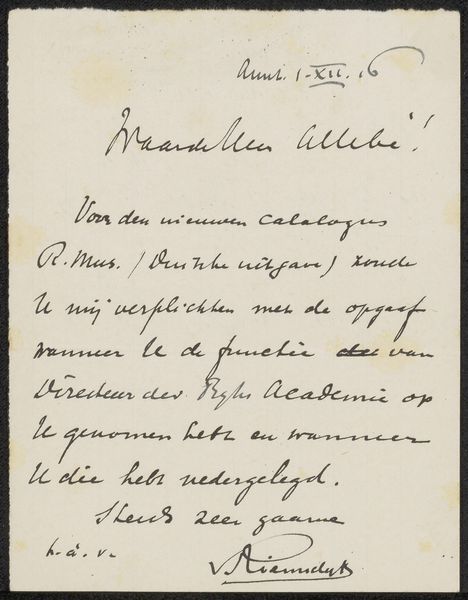 Amst. 1-XII.16
Waarde Heer Allebé!
Voor den nieuwen Catalogus
R. Mus. (Duitsche uitgave) zoude
U mij verplichten met de opgaaf
wanneer U de functie van
Directeur der Ryks Academie op
U genomen hebt en wanneer
U die hebt nedergelegd.
Steeds zeer gaarne
t. à. v.
v Riemsdyk